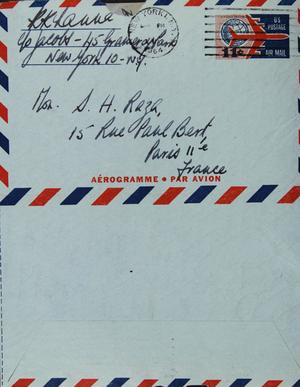 KKhanna
c/o Jacobs - 45 Gramercy Park
New York 10 - NY.
NEW YORK
PM
1964
US
POSTAGE
11c
AIR MAIL
Mon. S. H. Raza,
15 Rue Paul Bert,
Paris 11e
France
AÉROGRAMME • PAR AVION